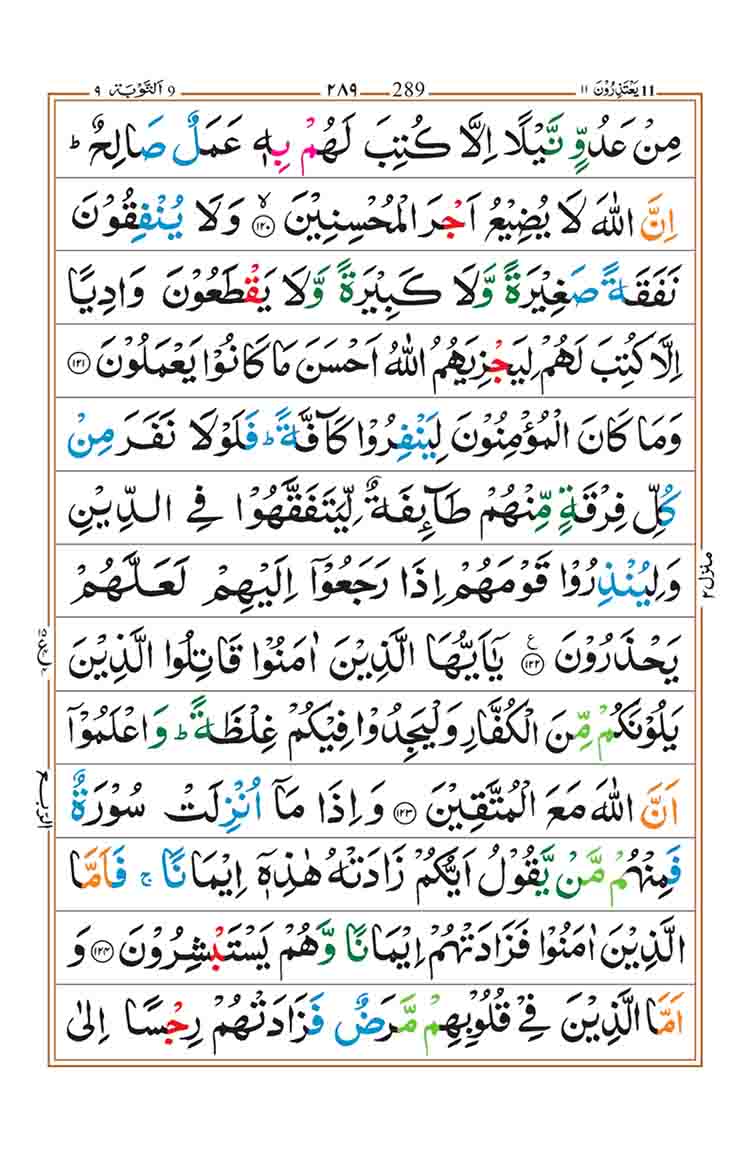 11 يَعْتَذِرُوْنَ ١١ 289 ٢٨٩ 9 اَلتَّوْبَة ٩
مِنْ عَدُوٍّ نَّيْلًا اِلَّا كُتِبَ لَهُمْ بِهٖ عَمَلٌ صَالِحٌ ؕ
اِنَّ اللّٰهَ لَا يُضِيْعُ اَجْرَ الْمُحْسِنِيْنَ ۙ﴿۱۲۰﴾ وَلَا يُنْفِقُوْنَ
نَفَقَةً صَغِيْرَةً وَّلَا كَبِيْرَةً وَّلَا يَقْطَعُوْنَ وَادِيًا
اِلَّا كُتِبَ لَهُمْ لِيَجْزِيَهُمُ اللّٰهُ اَحْسَنَ مَا كَانُوْا يَعْمَلُوْنَ ﴿۱۲۱﴾
وَمَا كَانَ الْمُؤْمِنُوْنَ لِيَنْفِرُوْا كَآفَّةً ؕ فَلَوْلَا نَفَرَ مِنْ
كُلِّ فِرْقَةٍ مِّنْهُمْ طَآئِفَةٌ لِّيَتَفَقَّهُوْا فِي الدِّيْنِ
وَلِيُنْذِرُوْا قَوْمَهُمْ اِذَا رَجَعُوْۤا اِلَيْهِمْ لَعَلَّهُمْ
يَحْذَرُوْنَ ﴿۱۲۲﴾ ع يٰۤاَيُّهَا الَّذِيْنَ اٰمَنُوْا قَاتِلُوا الَّذِيْنَ
يَلُوْنَكُمْ مِّنَ الْكُفَّارِ وَلْيَجِدُوْا فِيْكُمْ غِلْظَةً ؕ وَاعْلَمُوْۤا
اَنَّ اللّٰهَ مَعَ الْمُتَّقِيْنَ ﴿۱۲۳﴾ وَاِذَا مَاۤ اُنْزِلَتْ سُوْرَةٌ
فَمِنْهُمْ مَّنْ يَّقُوْلُ اَيُّكُمْ زَادَتْهُ هٰذِهٖۤ اِيْمَانًا ۚ فَاَمَّا
الَّذِيْنَ اٰمَنُوْا فَزَادَتْهُمْ اِيْمَانًا وَّهُمْ يَسْتَبْشِرُوْنَ ﴿۱۲۴﴾ وَ
اَمَّا الَّذِيْنَ فِيْ قُلُوْبِهِمْ مَّرَضٌ فَزَادَتْهُمْ رِجْسًا اِلٰى
منزل ٢
الربع